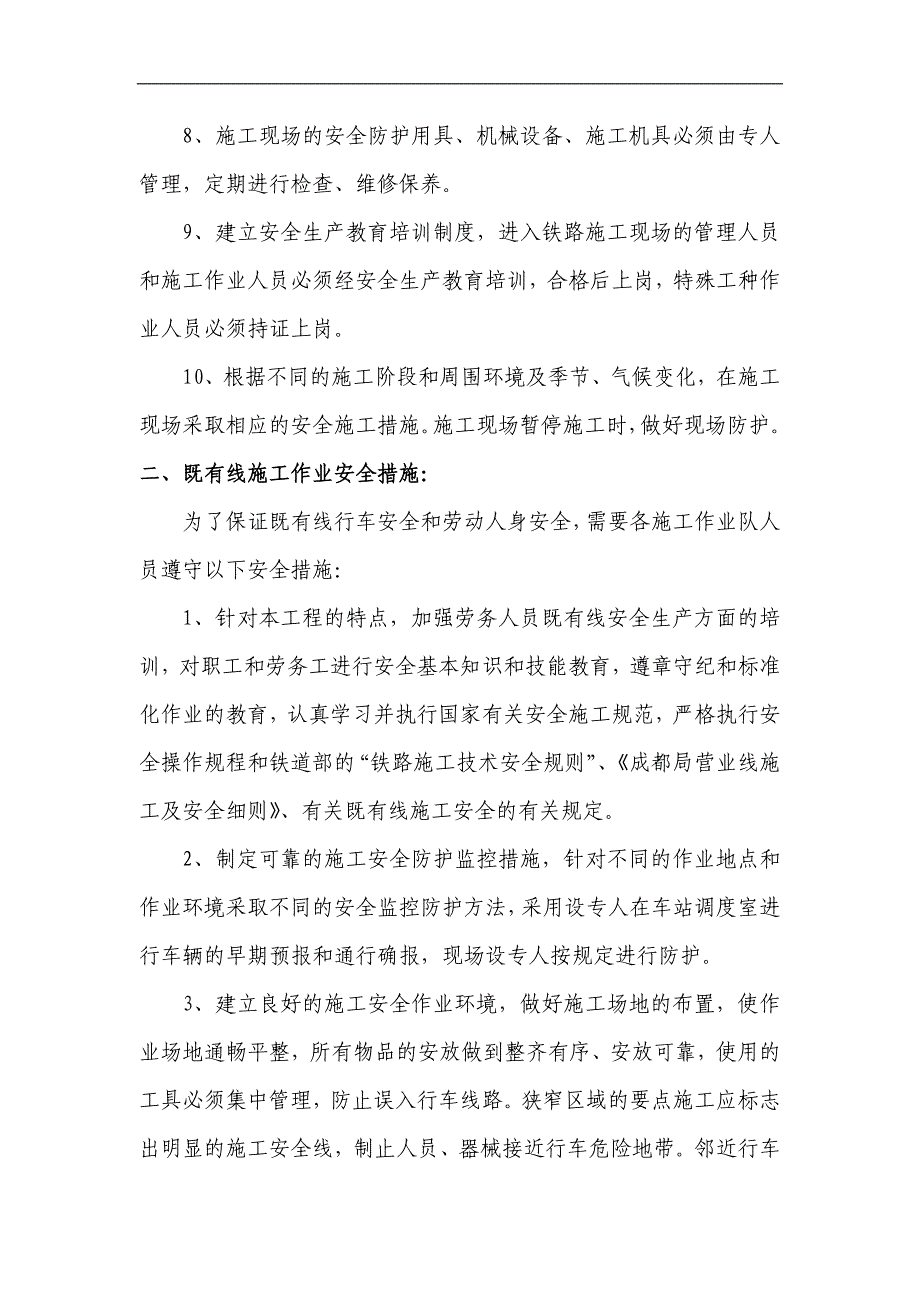 8、施工现场的安全防护用具、机械设备、施工机具必须由专人
管理，定期进行检查、维修保养。
9、建立安全生产教育培训制度，进入铁路施工现场的管理人员
和施工作业人员必须经安全生产教育培训，合格后上岗，特殊工种作
业人员必须持证上岗。
10、根据不同的施工阶段和周围环境及季节、气候变化，在施工
现场采取相应的安全施工措施。施工现场暂停施工时，做好现场防护。
二、既有线施工作业安全措施：
为了保证既有线行车安全和劳动人身安全，需要各施工作业队人
员遵守以下安全措施：
1、针对本工程的特点，加强劳务人员既有线安全生产方面的培
训，对职工和劳务工进行安全基本知识和技能教育，遵章守纪和标准
化作业的教育，认真学习并执行国家有关安全施工规范，严格执行安
全操作规程和铁道部的“铁路施工技术安全规则”、《成都局营业线施
工及安全细则》、有关既有线施工安全的有关规定。
2、制定可靠的施工安全防护监控措施，针对不同的作业地点和
作业环境采取不同的安全监控防护方法，采用设专人在车站调度室进
行车辆的早期预报和通行确报，现场设专人按规定进行防护。
3、建立良好的施工安全作业环境，做好施工场地的布置，使作
业场地通畅平整，所有物品的安放做到整齐有序、安放可靠，使用的
工具必须集中管理，防止误入行车线路。狭窄区域的要点施工应标志
出明显的施工安全线，制止人员、器械接近行车危险地带。邻近行车